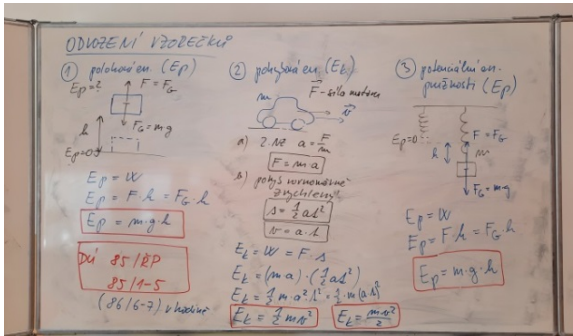 ODVOZENÍ VZOREČKŮ
① polohová en. (Ep)
Ep=?
F = FG
FG = mg
h
Ep=0
Ep = W
Ep = F·h = FG·h
Ep = m·g·h
DÚ 85/ŘP
85/1-5
(86/6-7) v hodině
② pohybová en. (Ek)
m
F - síla motoru
v
a) 2.NZ a = F/m
F = m·a
b) pohyb rovnoměrně
zrychlený
s = 1/2 at²
v = a·t
Ek = W = F·s
Ek = (m·a)·(1/2 at²)
Ek = 1/2 m·a²·t² = 1/2·m(a·t)²
Ek = 1/2 mv²
Ek = mv²/2
③ potenciální en.
pružnosti (Ep)
Ep=0
h
F = FG
m
FG = mg
Ep = W
Ep = F·h = FG·h
Ep = m·g·h